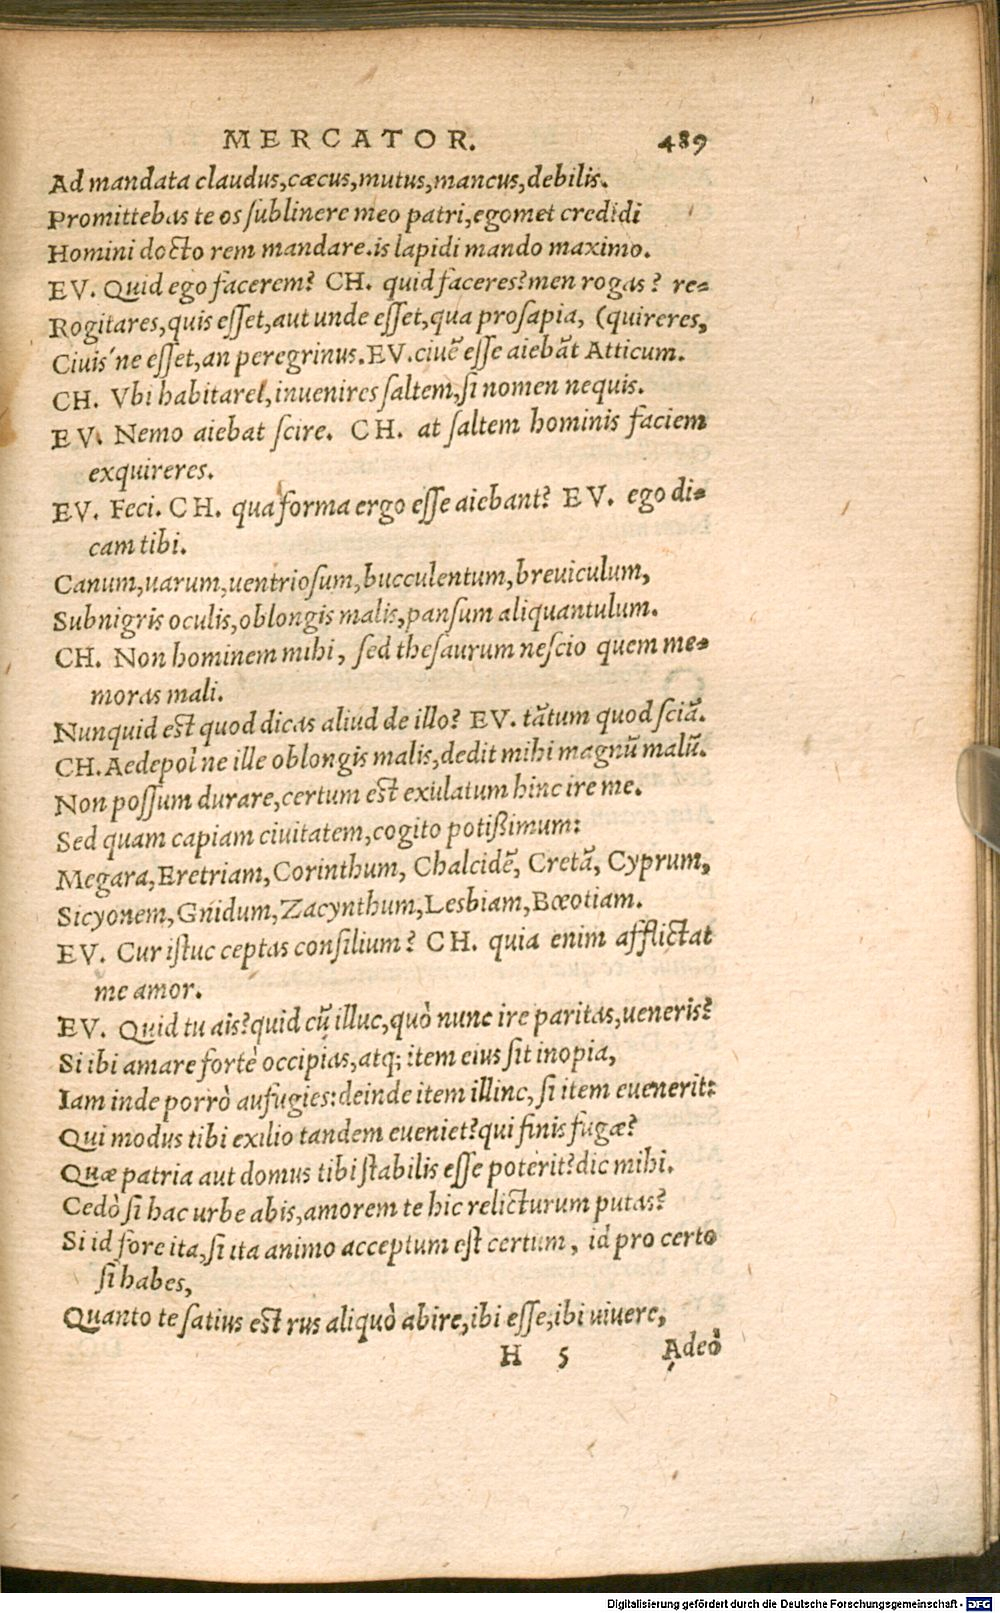 MERCATOR. 489
Ad mandata claudus,cæcus,mutus,mancus,debilis.
Promittebas te os ſublinere meo patri,egomet credidi
Homini docto rem mandare.is lapidi mando maximo.
EV. Quid ego facerem? CH. quid faceres?men rogas? re-
Rogitares,quis eſſet,aut unde eſſet,qua proſapia, (quireres,
Ciuis'ne eſſet,an peregrinus.EV.ciuẽ eſſe aiebãt Atticum.
CH. Vbi habitaret,inuenires ſaltem,ſi nomen nequis.
EV. Nemo aiebat ſcire. CH. at ſaltem hominis faciem
exquireres.
EV. Feci. CH. qua forma ergo eſſe aiebant? EV. ego di-
cam tibi.
Canum,uarum,uentrioſum,bucculentum,breuiculum,
Subnigris oculis,oblongis malis,panſum aliquantulum.
CH. Non hominem mihi, ſed theſaurum neſcio quem me-
moras mali.
Nunquid est quod dicas aliud de illo? EV. tãtum quod ſciã.
CH. Aedepòl ne ille oblongis malis,dedit mihi magnũ malũ.
Non poſſum durare,certum est exulatum hinc ire me.
Sed quam capiam ciuitatem,cogito potißimum:
Megara,Eretriam,Corinthum, Chalcidẽ, Cretã, Cyprum,
Sicyonem,Gnidum,Zacynthum,Lesbiam,Bœotiam.
EV. Cur iſtuc ceptas conſilium? CH. quia enim afflictat
me amor.
EV. Quid tu ais?quid cũ illuc,quò nunc ire paritas,ueneris?
Si ibi amare fortè occipias,atq; item eius ſit inopia,
Iam inde porrò aufugies:deinde item illinc, ſi item euenerit:
Qui modus tibi exilio tandem eueniet?qui finis fugæ?
Quæ patria aut domus tibi ſtabilis eſſe poterit?dic mihi.
Cedò ſi hac urbe abis,amorem te hic relicturum putas?
Si id fore ita,ſi ita animo acceptum eſt certum, id pro certo
ſi habes,
Quanto te ſatius est rus aliquò abire,ibi eſſe,ibi uiuere,
H 5 Adeò
Digitalisierung gefördert durch die Deutsche Forschungsgemeinschaft - DFG